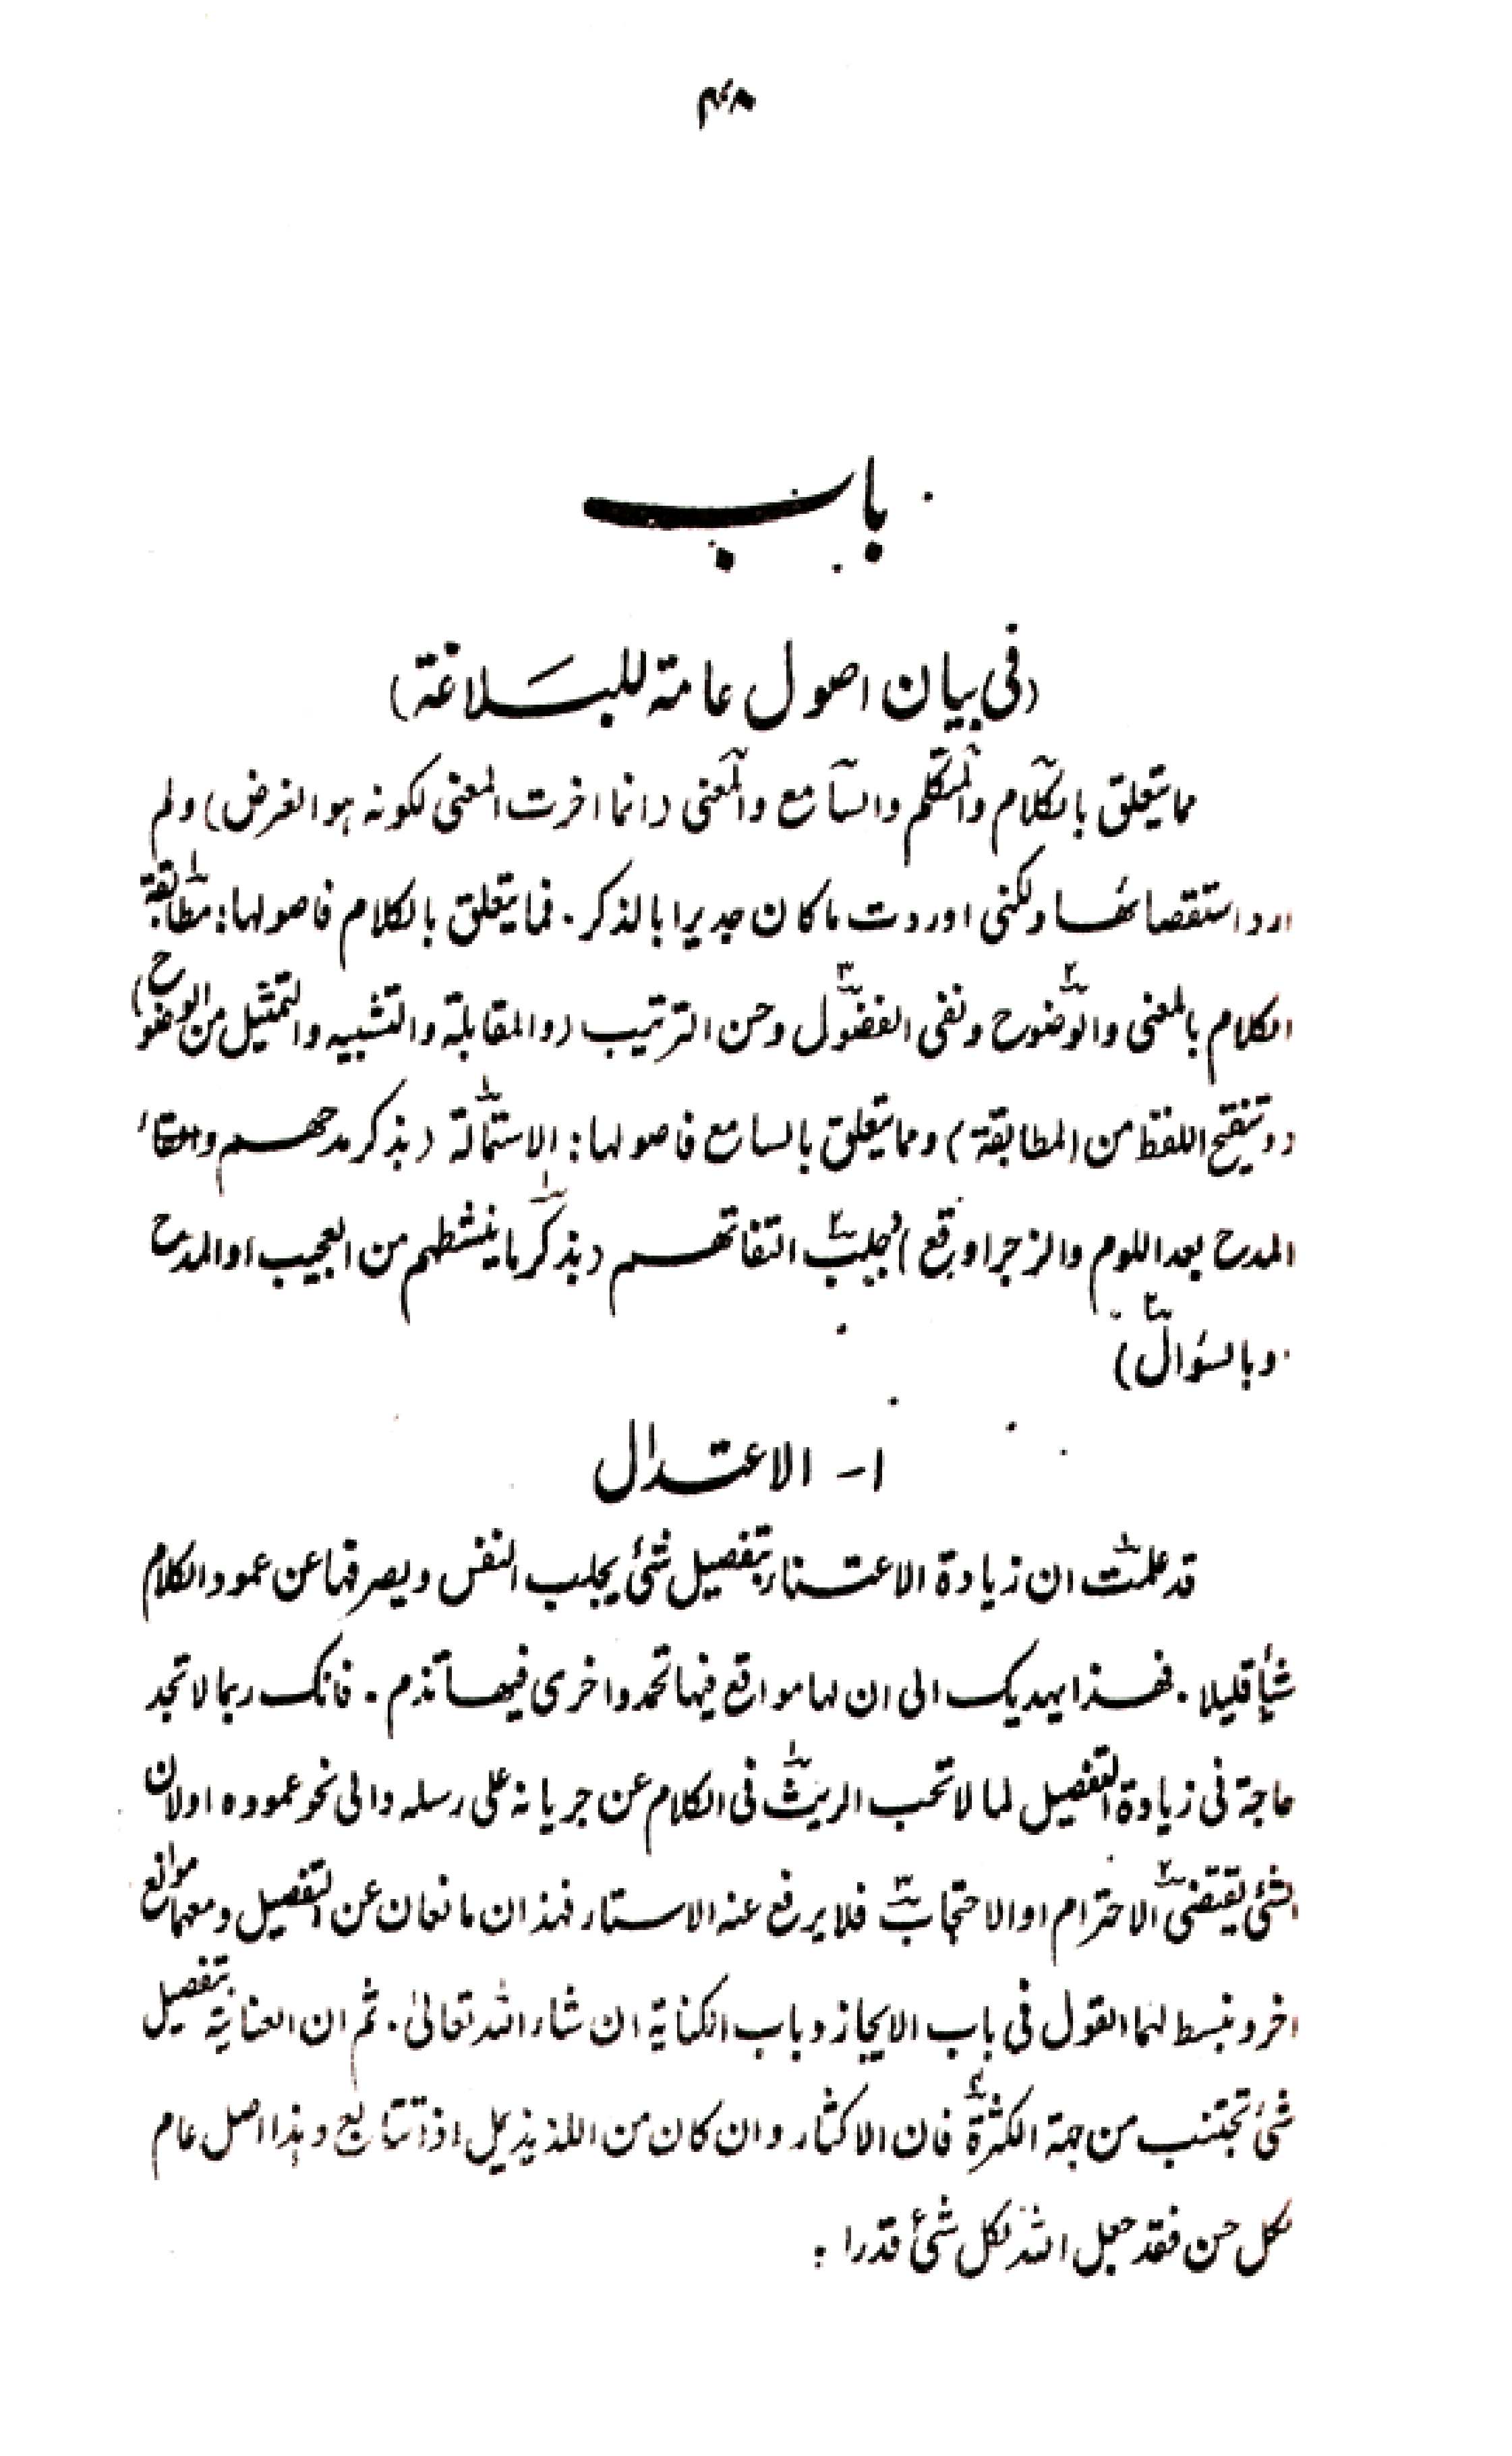 ۴۸
باب
(فی بیان اصول عامة للبلاغة)
مما یتعلق بالکلام والمتکلم والسامع والمعنی (انما اخرت المعنی لکونه هو الغرض) ولم
ارد استقصائها ولکنی اوردت ما کان جدیرا بالذکر. فما یتعلق بالکلام فاصولها: مطابقة
الکلام بالمعنی والوضوح ونفی الفضول وحسن الترتیب (والمقابلة والتشبیه والتمثیل من الوضوح)
(وتنقیح اللفظ من المطابقة) ومما یتعلق بالسامع فاصولها: الاستمالة (بذکر مدحهم
المدح بعد اللوم والزجر اوقع) وجلب التفاتهم (بذکر ما ینشطهم من العجیب او المدح
وبالسؤال)
۱- الاعتدال
قد علمت ان زیادة الاعتناء بتفصیل شئ یجلب النفس ویصرفها عن عمود الکلام
شیأ قلیلا. فهذا یهدیک الی ان لها مواقع فیها تحمد واخری فیها تذم. فانک ربما لا تجد
حاجة فی زیادة التفصیل لما لا تحب الریث فی الکلام عن جریانه علی رسله والی نحو عموده اولان
الشئ یقتضی الاحترام او الاحتجاب فلا یرفع عنه الاستار فهذان مانعان عن التفصیل ومعهما موانع
اخر ونبسط لهما القول فی باب الایجاز وباب الکنایة ان شاء الله تعالیٰ. ثم ان العنایة بتفصیل
شئ تجتنب من جهة الکثرة فان الاکثار وان کان من اللذیذ یمل اذا تتابع وهذا اصل عام
لکل حسن فقد جعل الله لکل شئ قدرا: